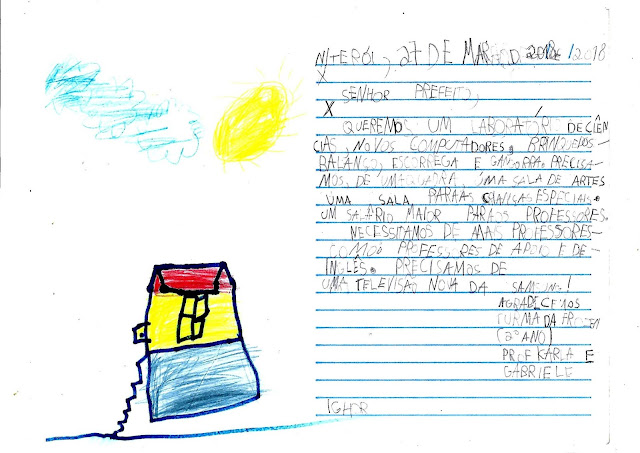 NITERÓI, 27 DE MARÇO D 2018 /2018
X
SENHOR PREFEITO,
X
QUEREMOS UM LABORATÓRIO DE CIÊN-
CIAS, NOVOS COMPUTADORES, BRINQUEDOS-
BALANÇO, ESCORREGA E GANGORRA. PRECISA-
MOS, DE UMA QUADRA, UMA SALA DE ARTES
UMA SALA, PARA AS CRIANÇAS ESPECIAIS.
UM SALÁRIO MAIOR PARA OS PROFESSORES.
NECESSITAMOS DE MAIS PROFESSORES-
COMO PROFESSORES DE APOIO E DE-
INGLÊS. PRECISAMOS DE
UMA TELEVISÃO NOVA DA SAMSUNG!
AGRADECEMOS
TURMA DA FROZEN
(2º ANO)
PROF KARLA E
GABRIELE
IGHOR